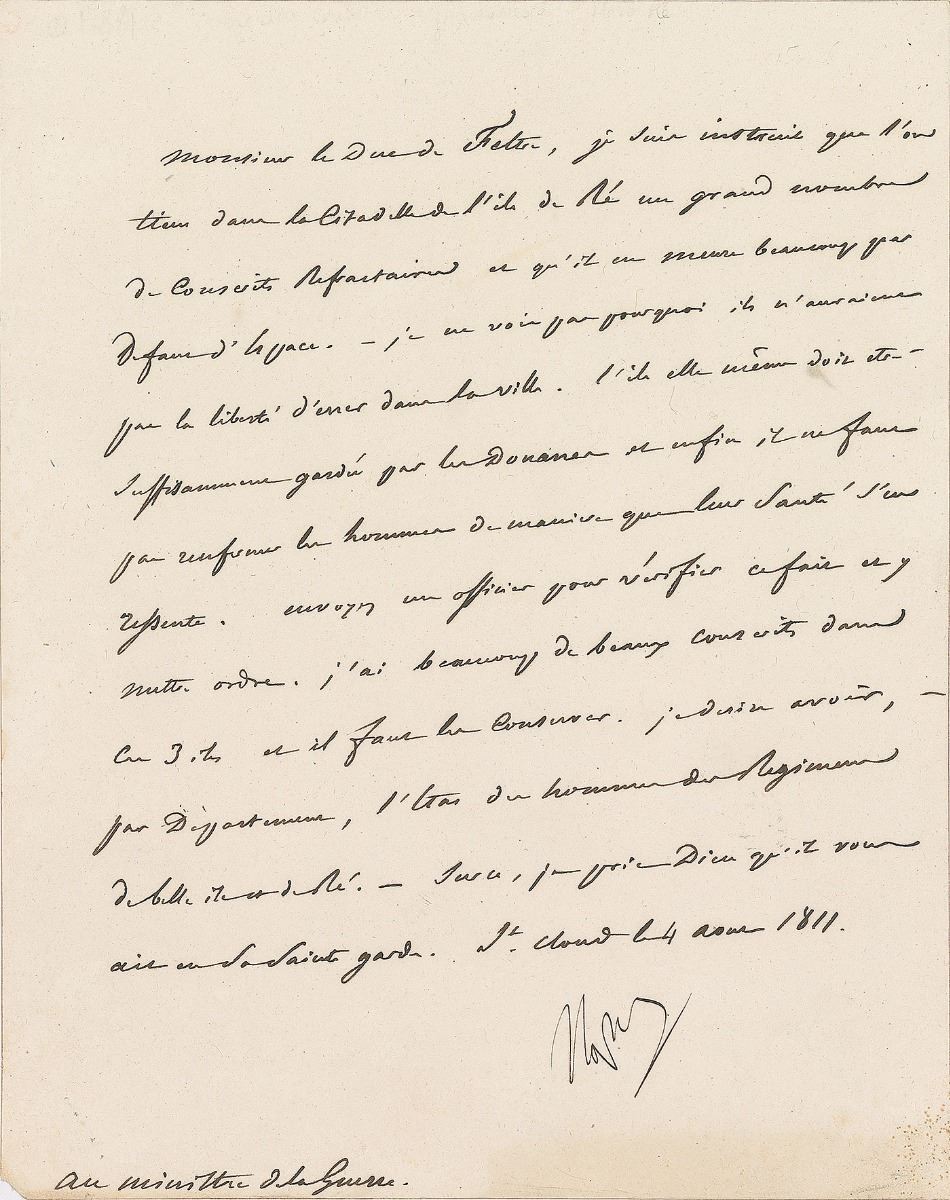 Monsieur le Duc de Feltre, je suis instruit que l'on
tient dans la Citadelle de l'ile de Ré un grand nombre
de Conscrits Refractaires et qu'il en meure beaucoup par
Défaut d'Espace. – je ne vois pas pourquoi ils n'auraient
pas la liberté d'errer dans la ville. l'ile elle même doit etre –
suffisamment gardée par les Douanes et enfin il ne faut
pas renfermer les hommes de maniere que leur Santé s'en
ressente. envoyez un officier pour vérifier ce fait et y
mettre ordre. j'ai beaucoup de beaux conscrits dans
Ces 3 iles et il faut les Conserver. je desire avoir, –
par Département, l'Etat des hommes des Regimens
de belle ile et de Ré. – Sur ce, je prie Dieu qu'il vous
ait en Sa Sainte garde. St. Cloud le 4 aout 1811.
Nap
au ministre de la Guerre.